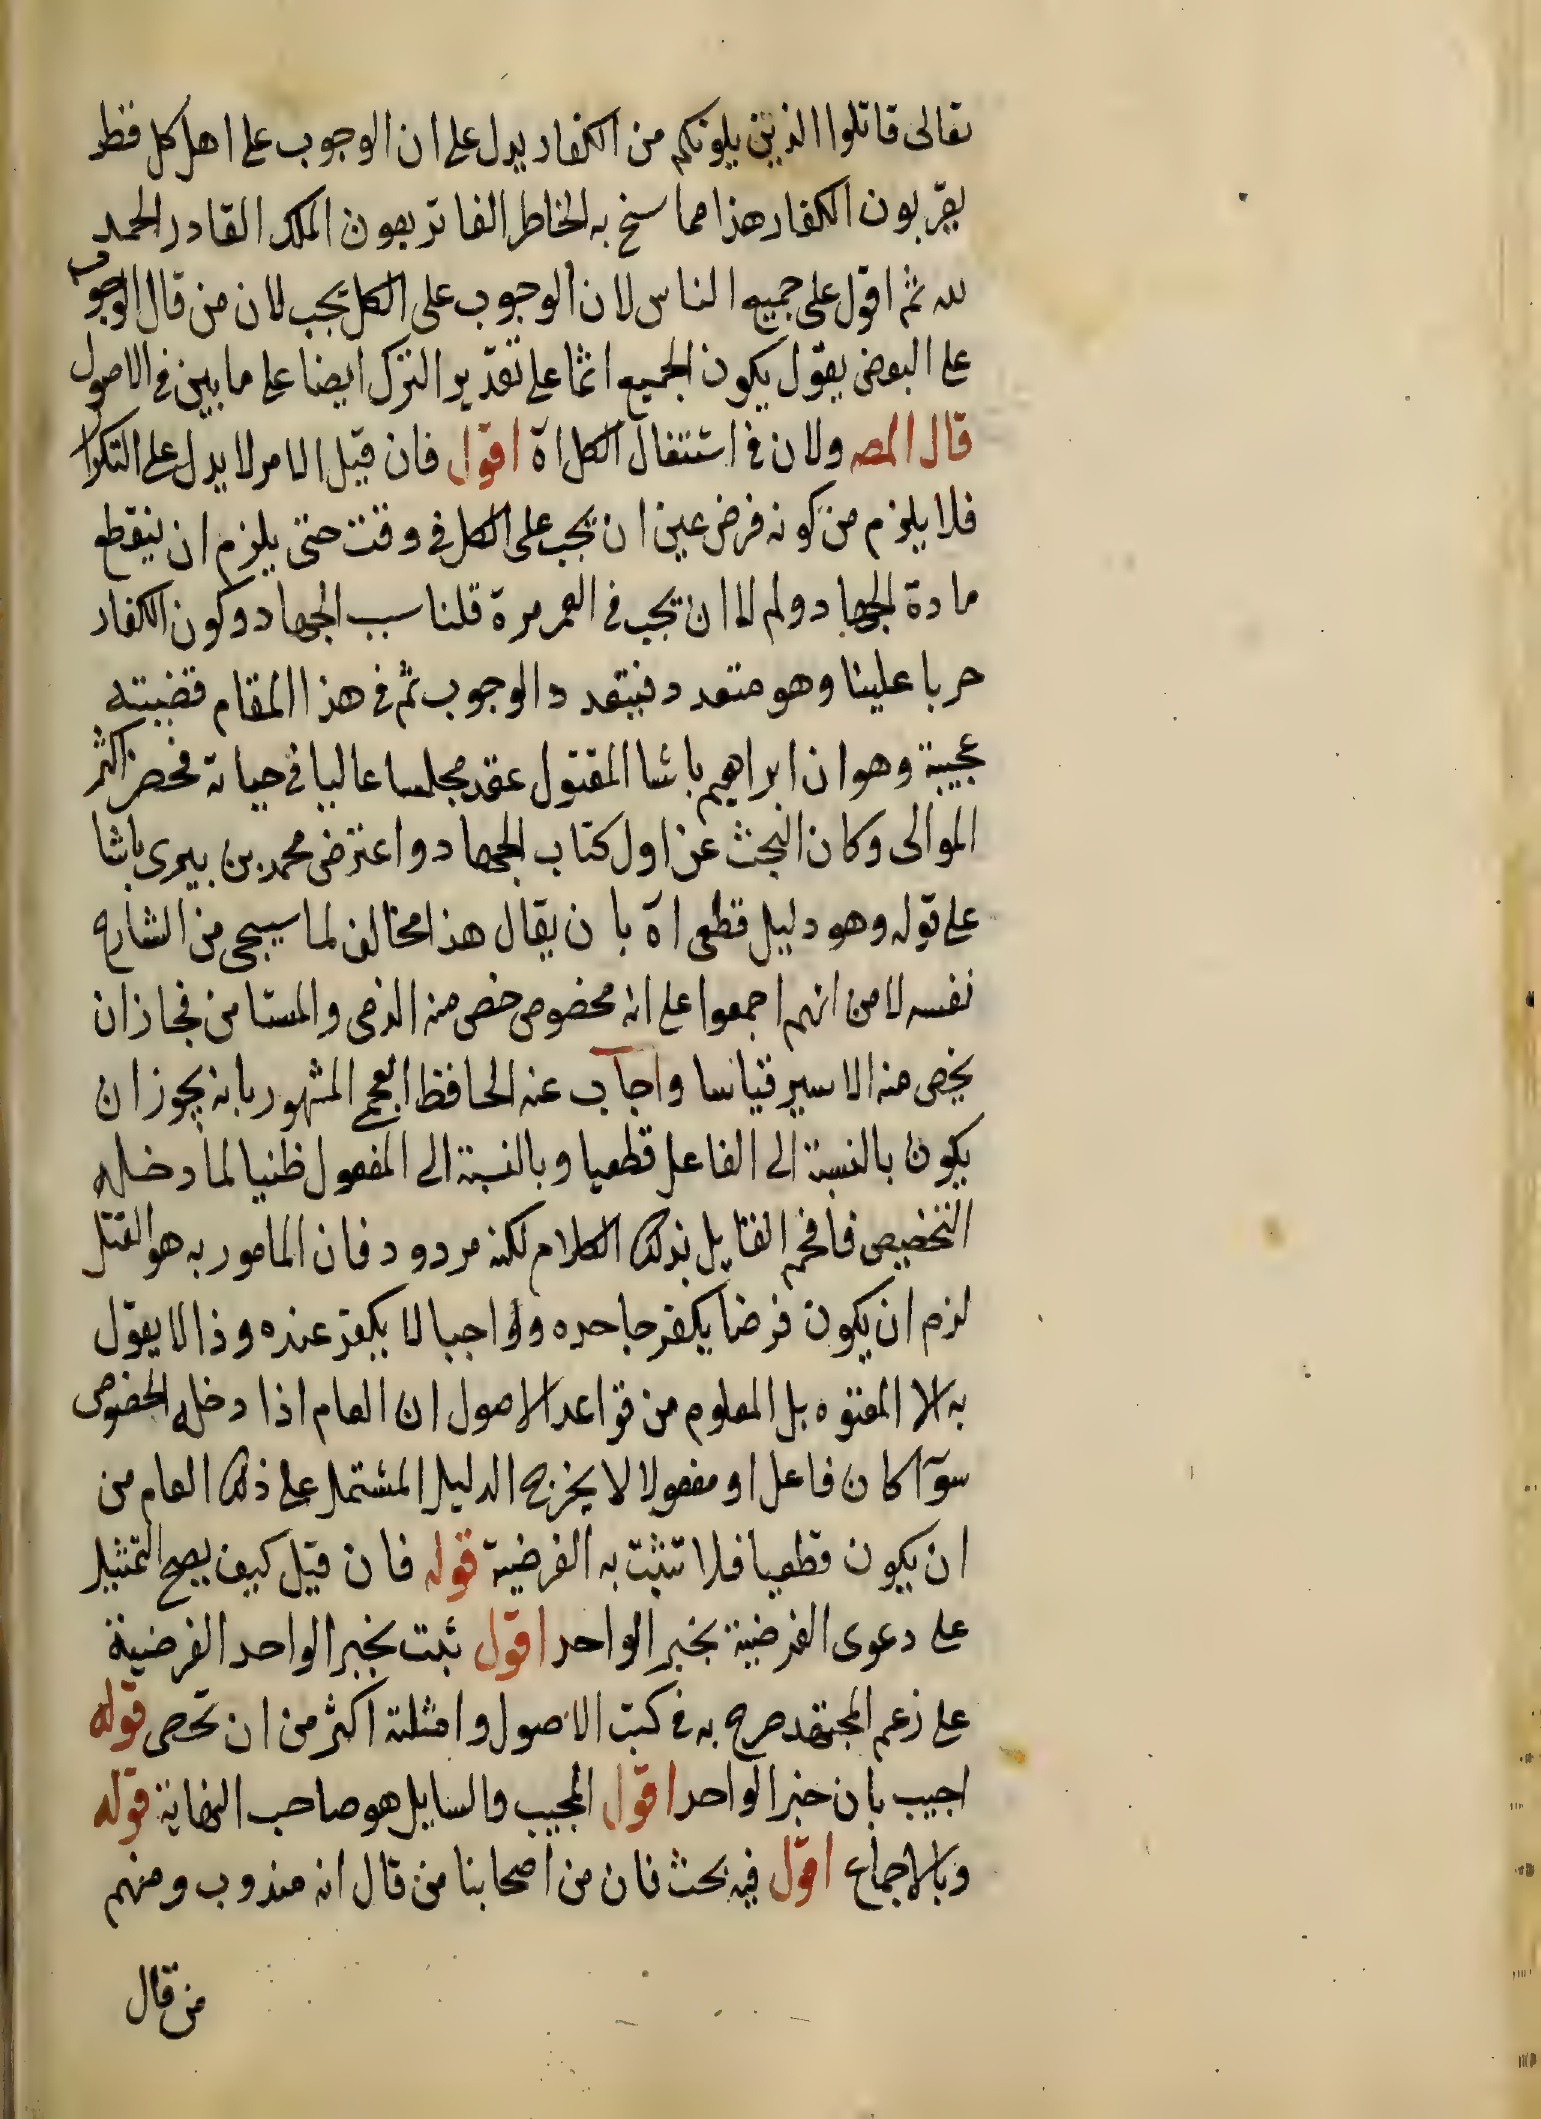 تعالى قاتلوا الذين يلونكم من الكفار يدل على ان الوجوب على اهل كل قطر
يقربون الكفار هذا مما سنح به الخاطر الفاتر بعون الملك القادر الحمد
لله ثم اقول على جميع الناس لان الوجوب على الكل يجب لان من قال الوجوب
على البعض يقول يكون الجميع اثما على تقدير الترك ايضا على ما بين في الاصول
قال المصـ ولان في اشتغال الكل اه اقول فان قيل الامر لا يدل على التكرار
فلا يلزم من كونه فرض عين ان يجب على الكل في وقت حتى يلزم ان ينقطع
مادة الجهاد ولم لا ان يجب في العمر مرة قلنا سبب الجهاد وكون الكفار
حربا علينا وهو متعدد فيتعدد الوجوب ثم في هذا المقام قضيته
عجيبة وهو ان ابراهيم باشا المقتول عقد مجلسا عاليا في حياته فحضر اكثر
الموالى وكان البحث عن اول كتاب الجهاد واعترض محمد بن بيرى باشا
على قوله وهو دليل قطعى اه بان يقال هذا مخالف لما سيجى من الشارح
نفسه لا من انهم اجمعوا على انه مخصوص خص منه الذمى والمستامن فجاز ان
يخص منه الاسير قياسا واجاب عنه الحافظ العجم المشهور بانه يجوز ان
يكون بالنسبة الى الفاعل قطعيا وبالنسبة الى المفعول ظنيا لما دخله
التخصيص فافحم القايل بذلك الكلام لكنه مردود فان المامور به هو القتل
لزم ان يكون فرضا يكفر جاحده وواجبا لا يكفر عنده وذا لا يقول
به الا المعتوه بل المعلوم من قواعد الاصول ان العام اذا دخله الخصوص
سوآ كان فاعلا او مفعولا لا يخرج الدليل المشتمل على ذلك العام من
ان يكون قطعيا فلا تثبت به الفرضية قوله فان قيل كيف يصح التمثيل
على دعوى الفرضية بخبر الواحد اقول ثبت بخبر الواحد الفرضية
على زعم المجتهد صرح به في كتب الاصول وامثلته اكثر من ان تحصى قوله
اجيب بان خبر الواحد اقول المجيب والسايل هو صاحب النهاية قوله
وبالاجماع اقول فيه بحث فان من اصحابنا من قال انه مندوب ومنهم
من قال